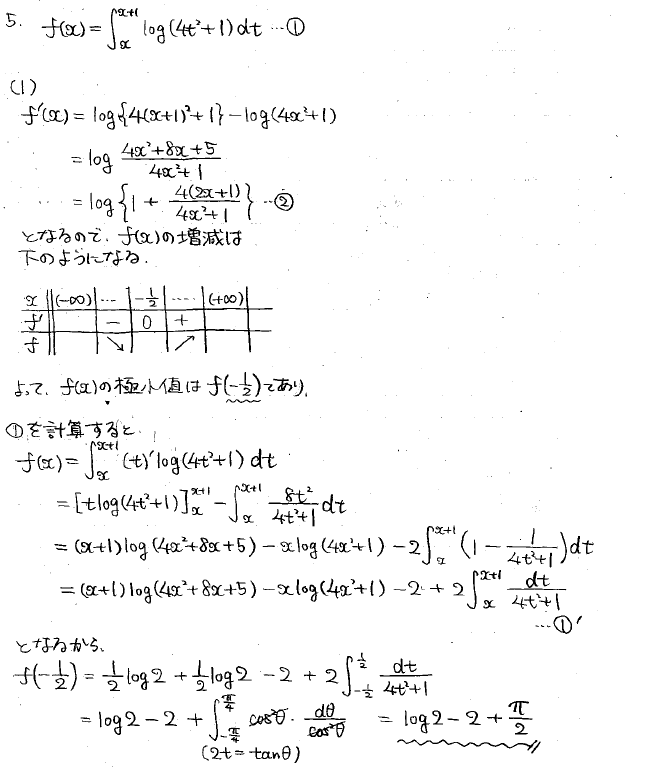 5. f(x) = ∫_x^{x+1} log(4t²+1)dt …①
(1)
f'(x) = log{4(x+1)²+1} - log(4x²+1)
= log (4x²+8x+5)/(4x²+1)
= log{1 + 4(2x+1)/(4x²+1)} …②
となるので、f(x)の増減は
下のようになる.
x | (-∞) | … | -1/2 | …. | (+∞)
f' | | - | 0 | + |
f | | ↘ | | ↗ |
よって、f(x)の極小値はf(-1/2)であり、
①を計算すると、
f(x) = ∫_x^{x+1} (t)' log(4t²+1) dt
= [t log(4t²+1)]_x^{x+1} - ∫_x^{x+1} 8t²/(4t²+1) dt
= (x+1)log(4x²+8x+5) - x log(4x²+1) - 2∫_x^{x+1} (1 - 1/(4t²+1))dt
= (x+1)log(4x²+8x+5) - x log(4x²+1) - 2 + 2∫_x^{x+1} dt/(4t²+1)
…①'
となるから、
f(-1/2) = 1/2 log2 + 1/2 log2 - 2 + 2∫_{-1/2}^{1/2} dt/(4t²+1)
= log2 - 2 + ∫_{-π/4}^{π/4} cos²θ · dθ/cos²θ = log2 - 2 + π/2
(2t = tanθ)